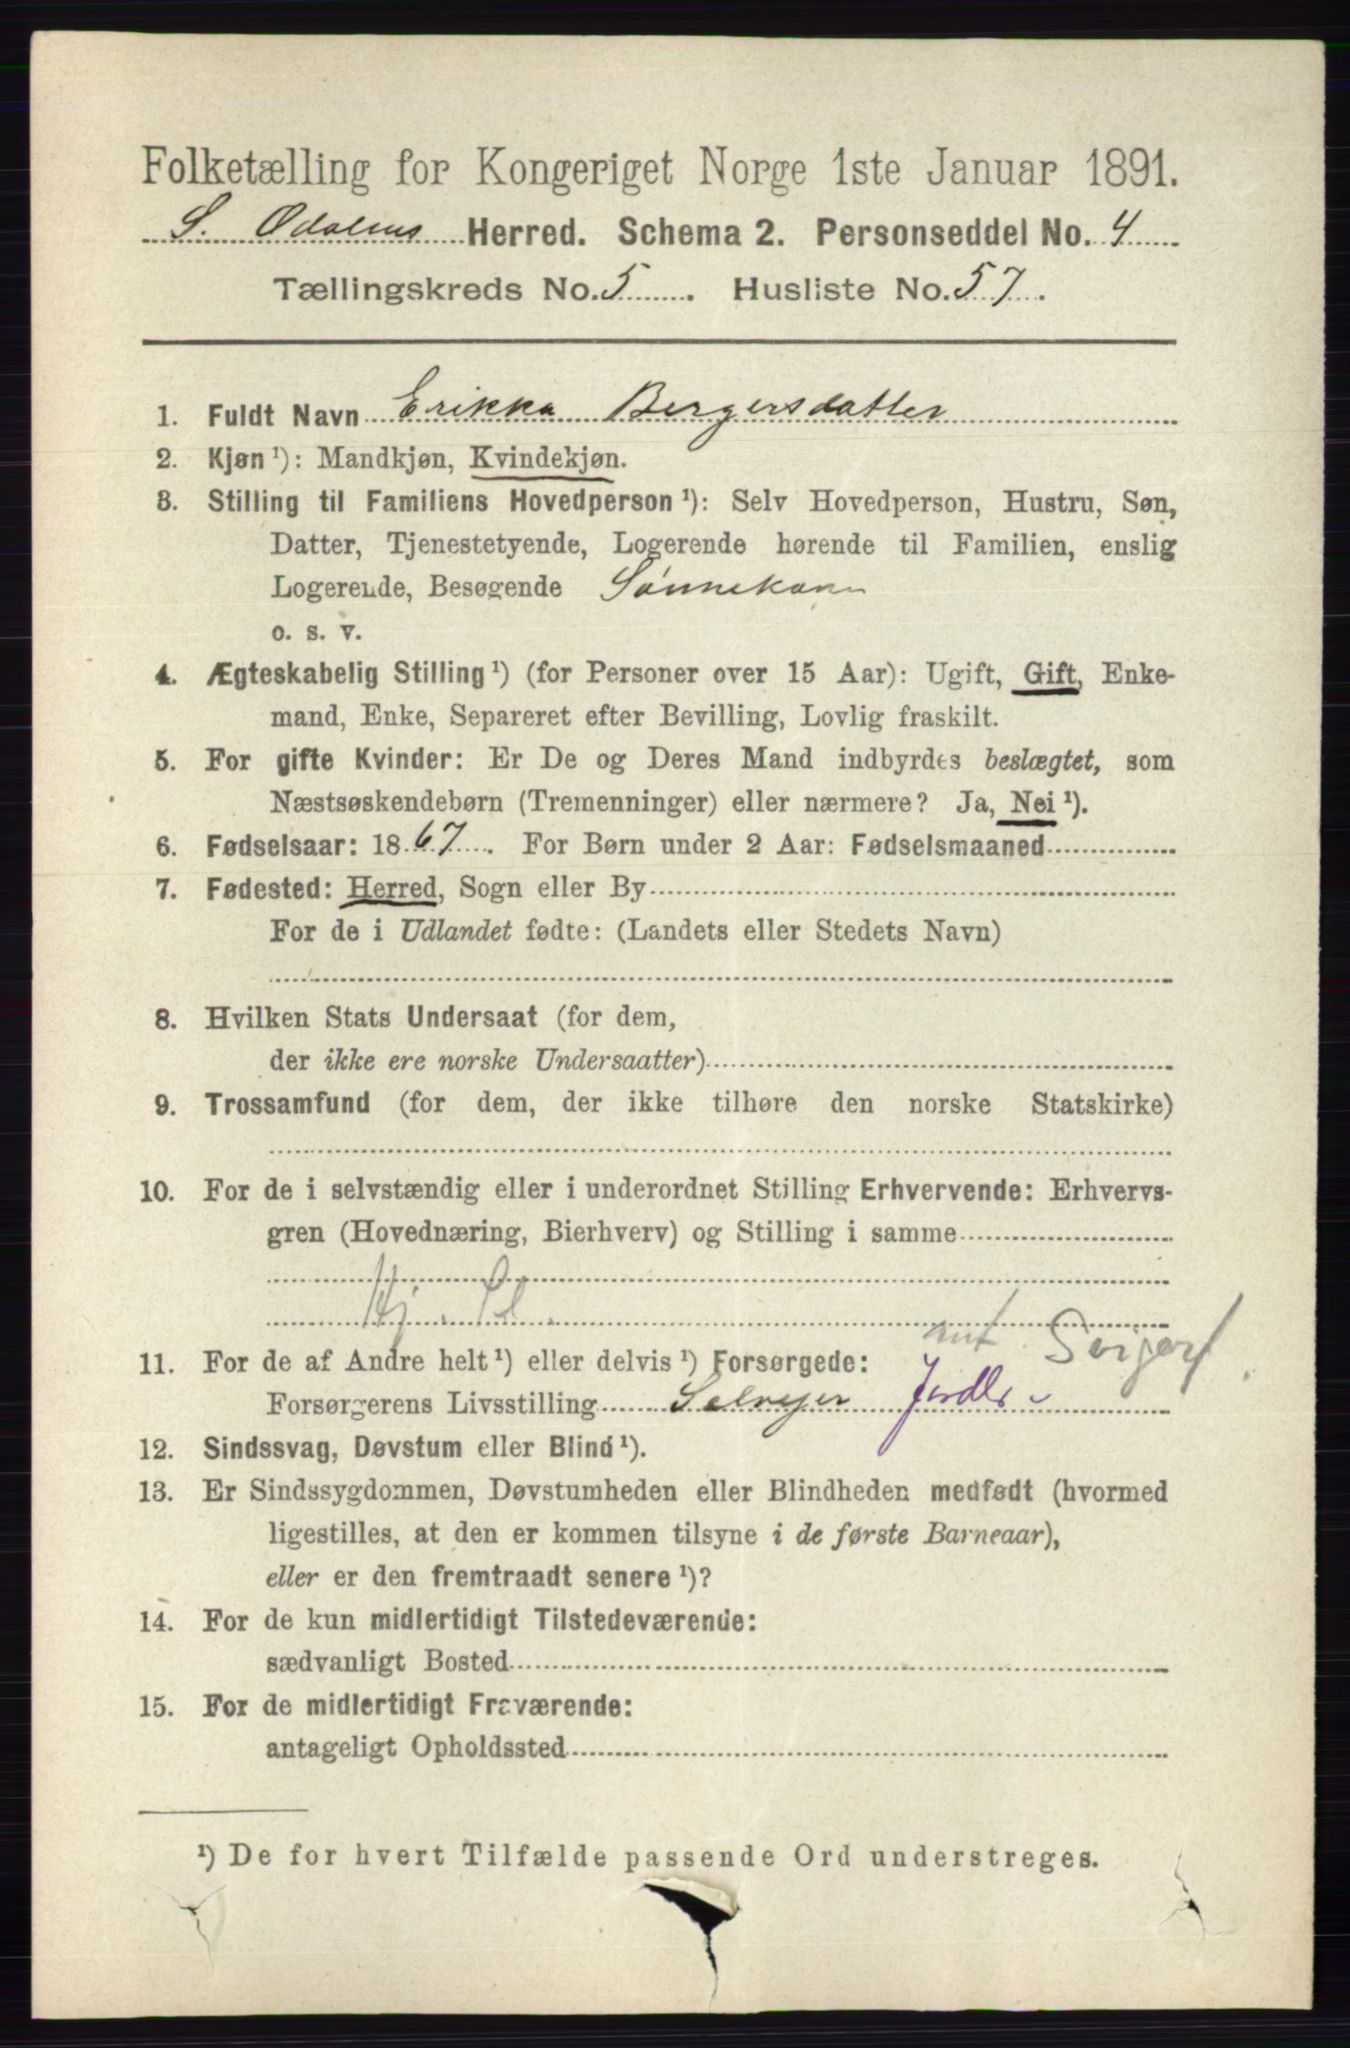 Folketælling for Kongeriget Norge 1ste Januar 1891.
S. Odalens Herred. Schema 2. Personseddel No. 4
Tællingskreds No. 5. Husliste No. 57.
1. Fuldt Navn Erikka Bergersdatter
2. Kjøn ¹): Mandkjøn, Kvindekjøn.
3. Stilling til Familiens Hovedperson ¹): Selv Hovedperson, Hustru, Søn,
Datter, Tjenestetyende, Logerende hørende til Familien, enslig
Logerende, Besøgende Sønnekone
o. s. v.
4. Ægteskabelig Stilling ¹) (for Personer over 15 Aar): Ugift, Gift, Enke-
mand, Enke, Separeret efter Bevilling, Lovlig fraskilt.
5. For gifte Kvinder: Er De og Deres Mand indbyrdes beslægtet, som
Næstsøskendebørn (Tremenninger) eller nærmere? Ja, Nei ¹).
6. Fødselsaar: 1867. For Børn under 2 Aar: Fødselsmaaned
7. Fødested: Herred, Sogn eller By
For de i Udlandet fødte: (Landets eller Stedets Navn)
8. Hvilken Stats Undersaat (for dem,
der ikke ere norske Undersaatter)
9. Trossamfund (for dem, der ikke tilhøre den norske Statskirke)
10. For de i selvstændig eller i underordnet Stilling Erhvervende: Erhvervs-
gren (Hovednæring, Bierhverv) og Stilling i samme
11. For de af Andre helt ¹) eller delvis ¹) Forsørgede:
Forsørgerens Livsstilling Selvejer
12. Sindssvag, Døvstum eller Blind ¹).
13. Er Sindssygdommen, Døvstumheden eller Blindheden medfødt (hvormed
ligestilles, at den er kommen tilsyne i de første Barneaar),
eller er den fremtraadt senere ¹)?
14. For de kun midlertidigt Tilstedeværende:
sædvanligt Bosted
15. For de midlertidigt Fraværende:
antageligt Opholdssted
¹) De for hvert Tilfælde passende Ord understreges.